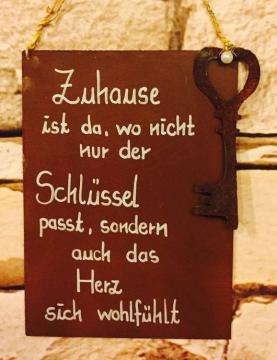 Zuhause
ist da, wo nicht
nur der
Schlüssel
passt, sondern
auch das
Herz
sich wohlfühlt